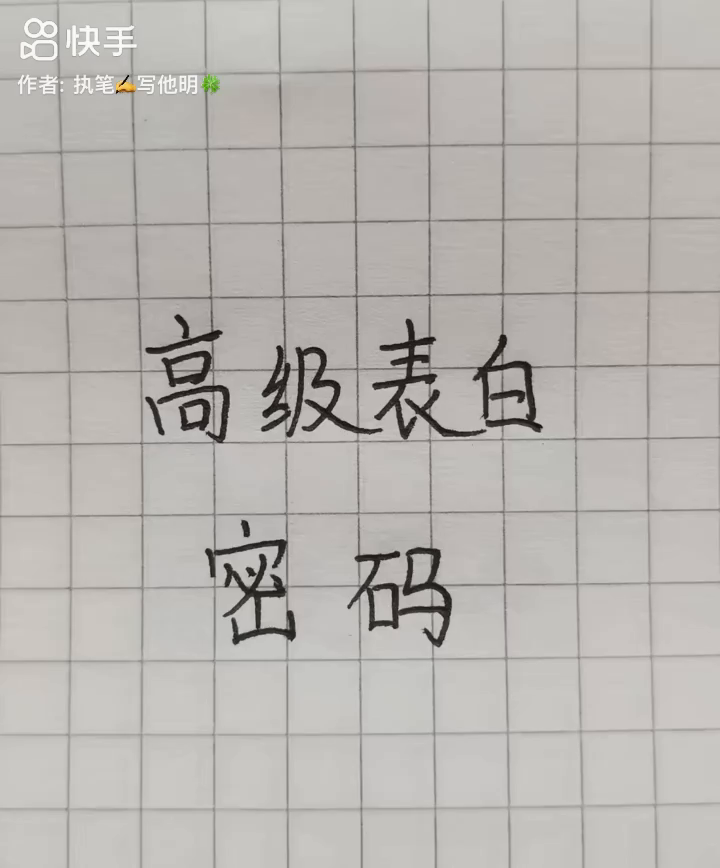 快手
作者: 执笔✍️写他明🍀
高级表白
密码